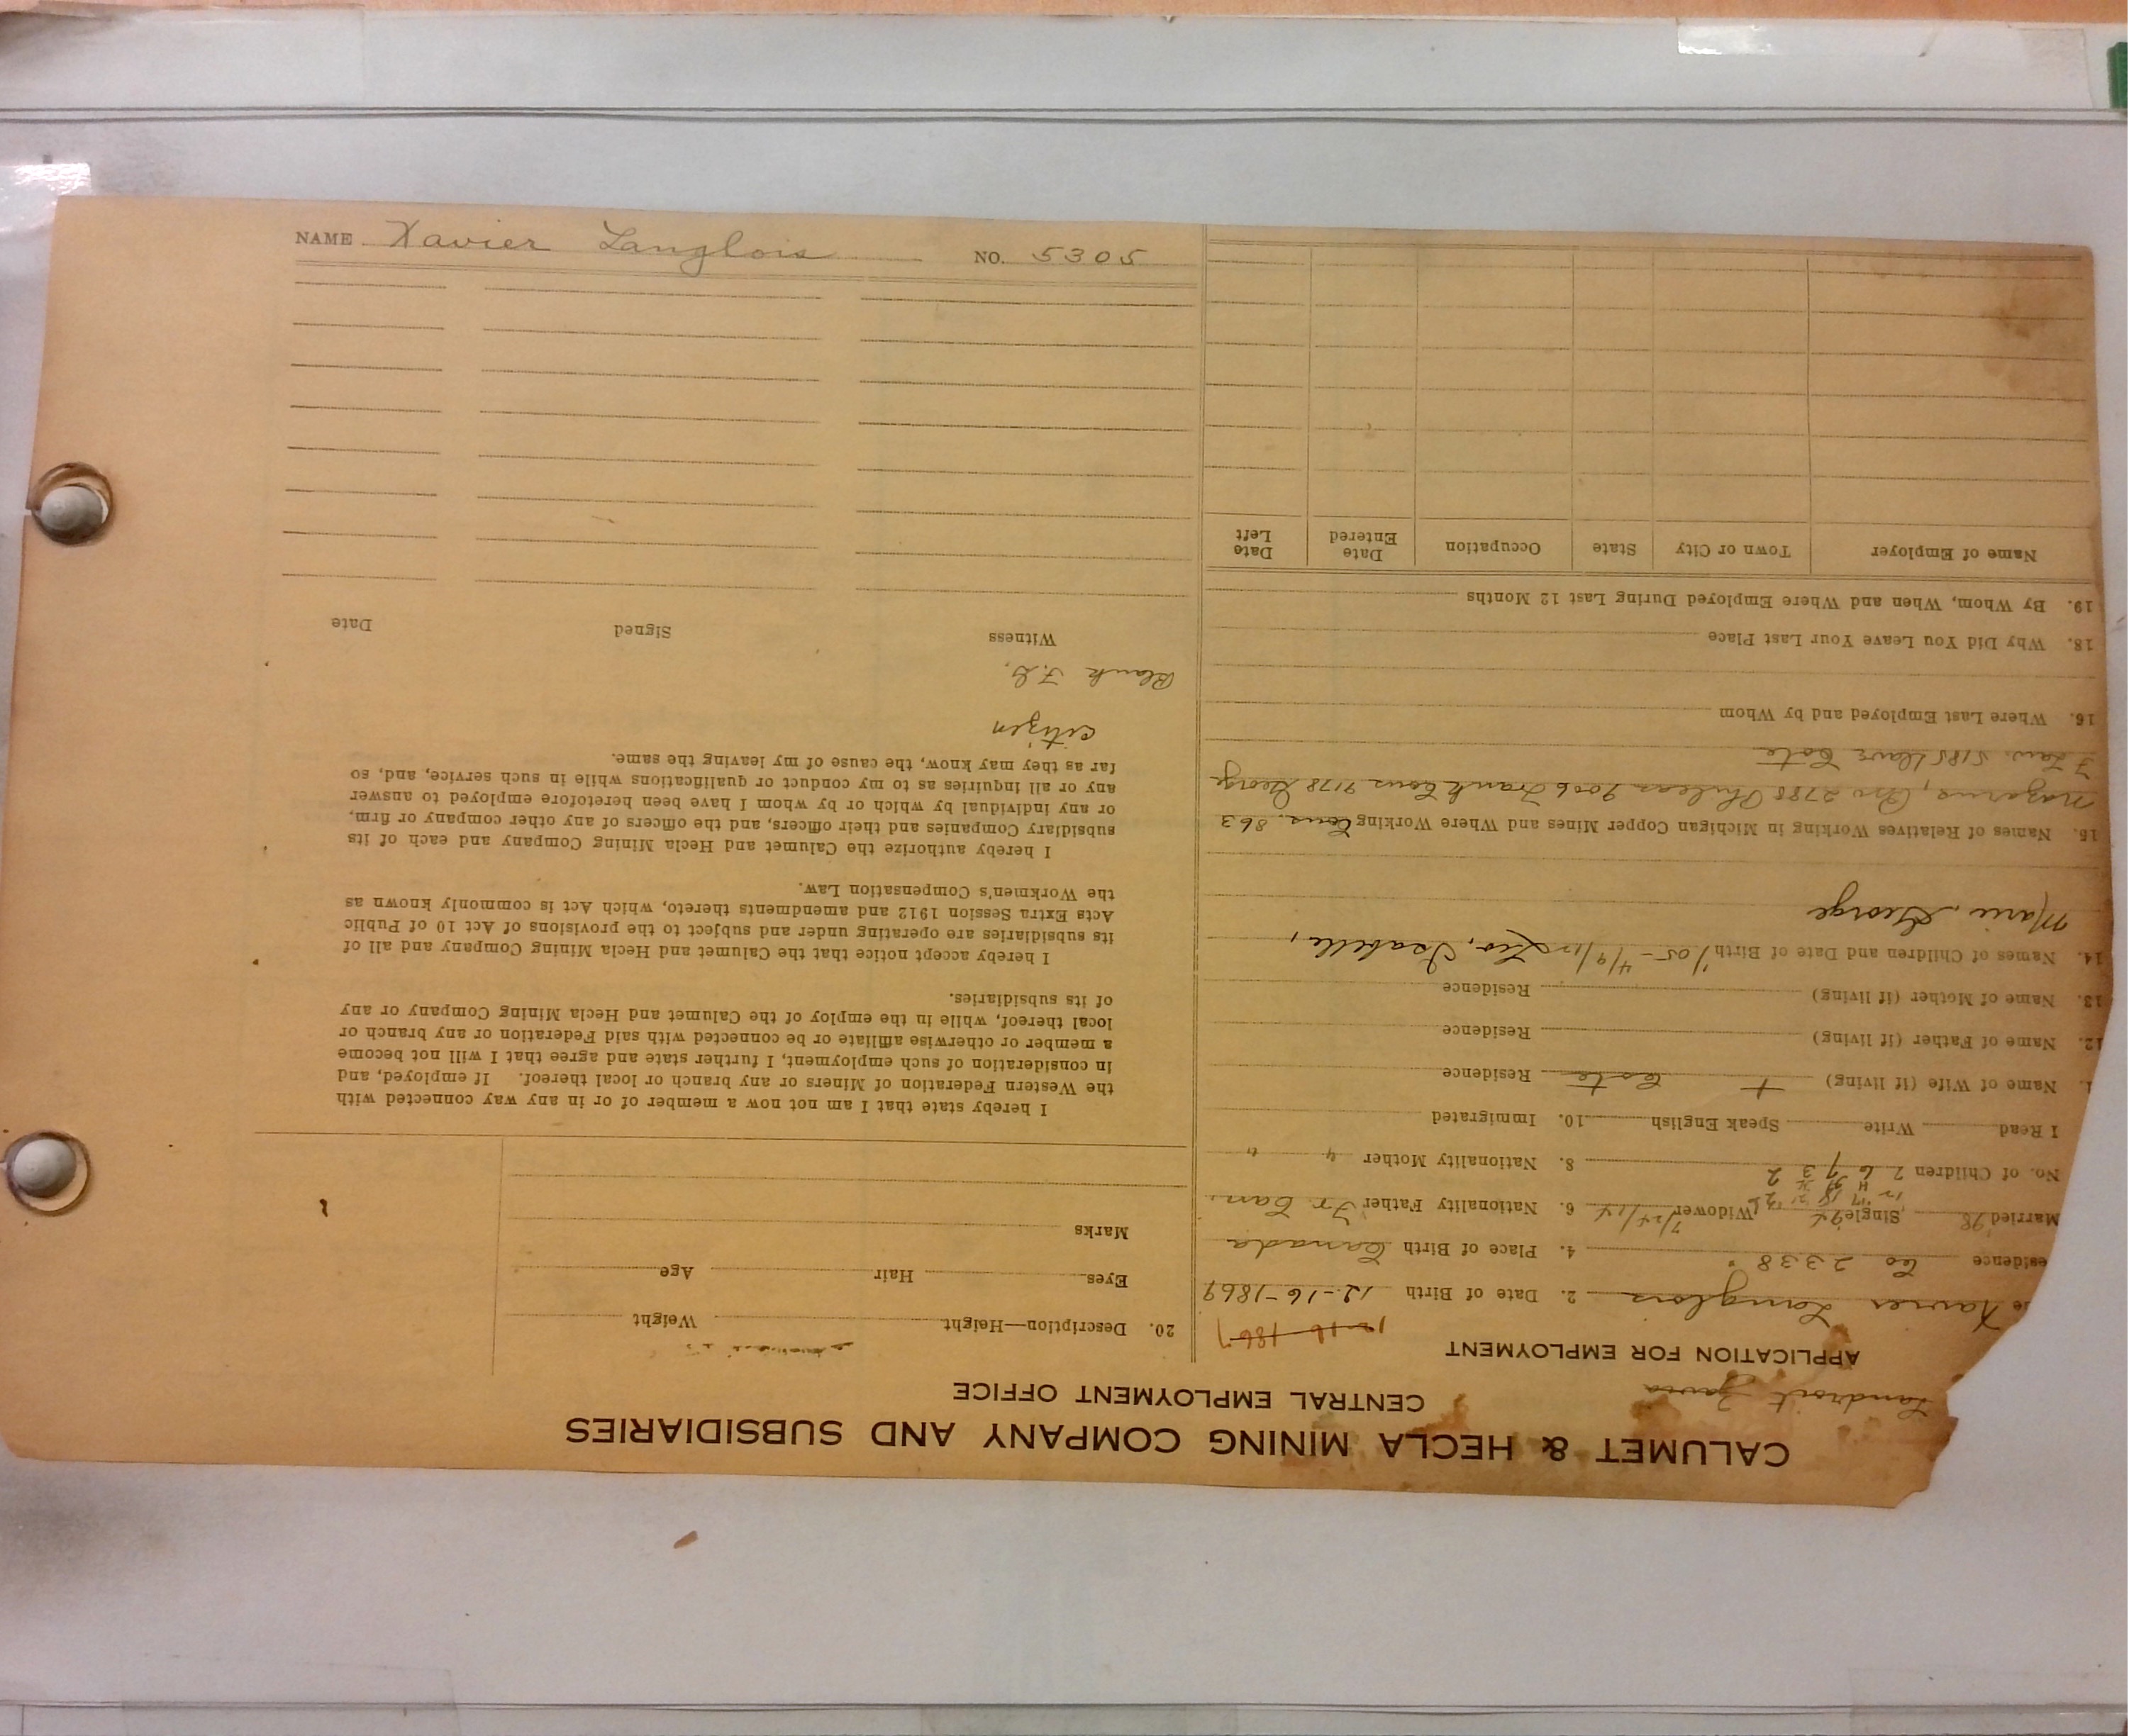 NAME Xavier Langlois NO. 5305
CALUMET & HECLA MINING COMPANY AND SUBSIDIARIES
CENTRAL EMPLOYMENT OFFICE
APPLICATION FOR EMPLOYMENT
12-16-1867
Xavier Langlois 2. Date of Birth 12-16-1869
esidence Co 2338 4. Place of Birth Canada
Married '98 Single Widower 7/24/14 6. Nationality Father Fr Can.
No. of Children 7 6 7 3 2 8. Nationality Mother " "
I Read Write Speak English 10. Immigrated
Name of Wife (if living) Cote Residence
12. Name of Father (if living) Residence
13. Name of Mother (if living) Residence
14. Names of Children and Date of Birth Leo, Isabelle,
Marie, George
15. Names of Relatives Working in Michigan Copper Mines and Where Working Cous. 863
Nazarius, Bro 2788 Phileas 9006 Frank Cous 9178 George
F Law. 5185 Dave Cote
16. Where Last Employed and by Whom
18. Why Did You Leave Your Last Place
19. By Whom, When and Where Employed During Last 12 Months
Name of Employer Town or City State Occupation Date Entered Date Left
20. Description—Height Weight
Eyes Hair Age
Marks
I hereby state that I am not now a member of or in any way connected with
the Western Federation of Miners or any branch or local thereof. If employed, and
in consideration of such employment, I further state and agree that I will not become
a member or otherwise affiliate or be connected with said Federation or any branch or
local thereof, while in the employ of the Calumet and Hecla Mining Company or any
of its subsidiaries.
I hereby accept notice that the Calumet and Hecla Mining Company and all of
its subsidiaries are operating under and subject to the provisions of Act 10 of Public
Acts Extra Session 1912 and amendments thereto, which Act is commonly known as
the Workmen's Compensation Law.
I hereby authorize the Calumet and Hecla Mining Company and each of its
subsidiary Companies and their officers, and the officers of any other company or firm,
or any individual by which or by whom I have been heretofore employed to answer
any or all inquiries as to my conduct or qualifications while in such service, and, so
far as they may know, the cause of my leaving the same.
citizen
Blank
Witness Signed Date